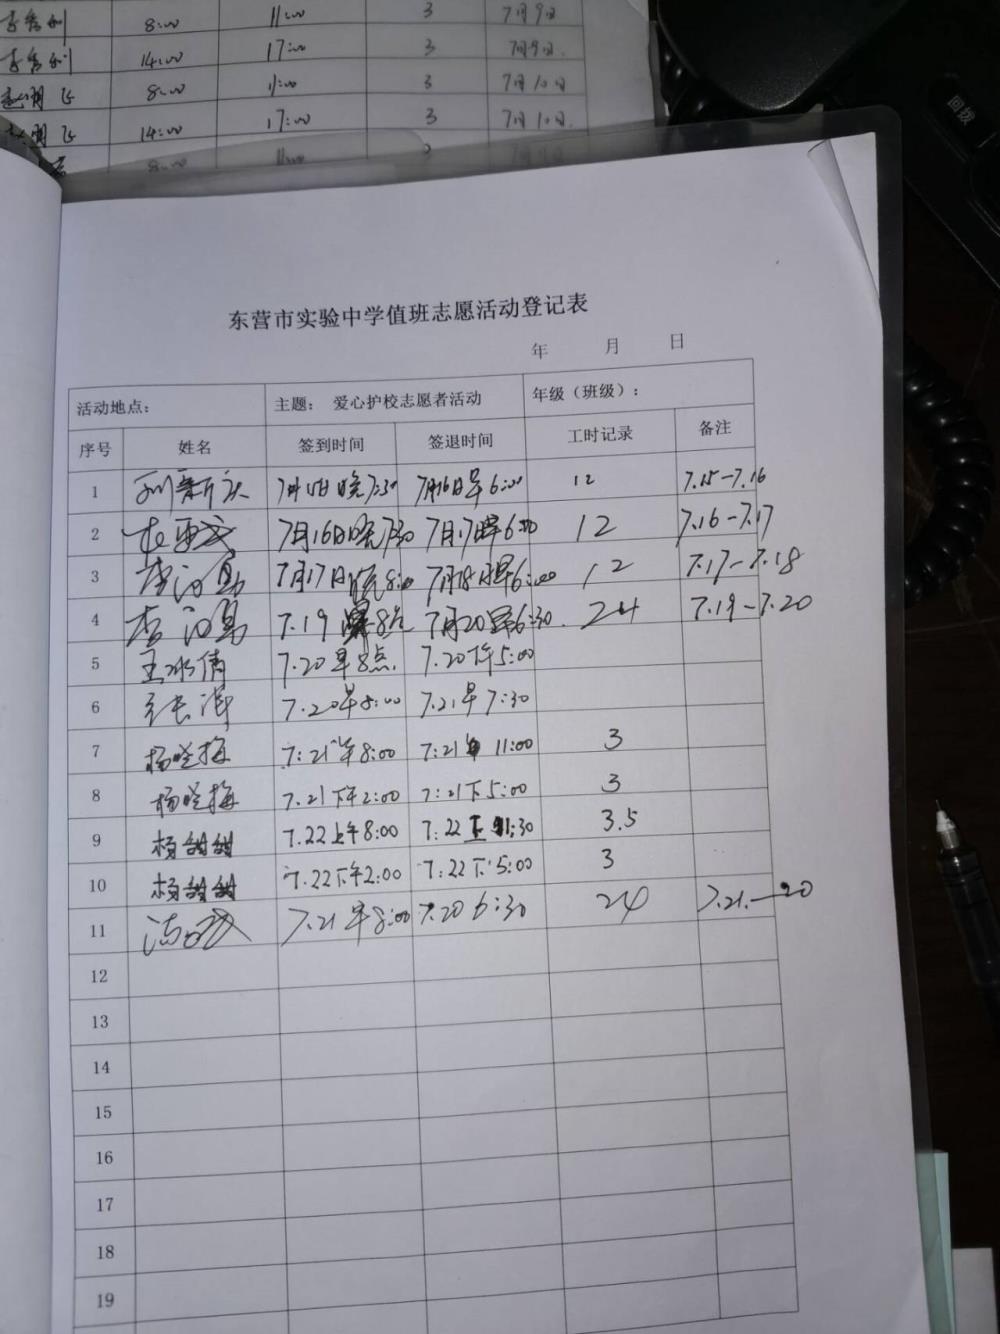 8:00 11:00 3 7月9日
14:00 17:00 3 7月9日.
8:00 11:00 3 7月10日
14:00 17:00 3 7月10日.
8:00 11:00
回拨
东营市实验中学值班志愿活动登记表
年 月 日
活动地点： 主题： 爱心护校志愿者活动 年级（班级）：
序号 姓名 签到时间 签退时间 工时记录 备注
1 7月15日晚7:30 7月16日早6:00 12 7.15-7.16
2 7月16日晚7:30 7月17日早6:30 12 7.16-7.17
3 7月17日晚8:00 7月18日早6:00 12 7.17-7.18
4 7.19 8点 7月20早6:30. 24 7.19-7.20
5 王冰倩 7.20早8点. 7.20下午5:00
6 张洋 7.20早8:00 7.21早7:30
7 杨晓梅 7:21上午8:00 7:21 11:00 3
8 杨晓梅 7.21下午2:00 7:21下5:00 3
9 杨甜甜 7.22上午8:00 7:22上11:30 3.5
10 杨甜甜 7.22下午2:00 7:22下5:00 3
11 7.21早8:00 7.20 6:30 24 7.21.—20
12
13
14
15
16
17
18
19